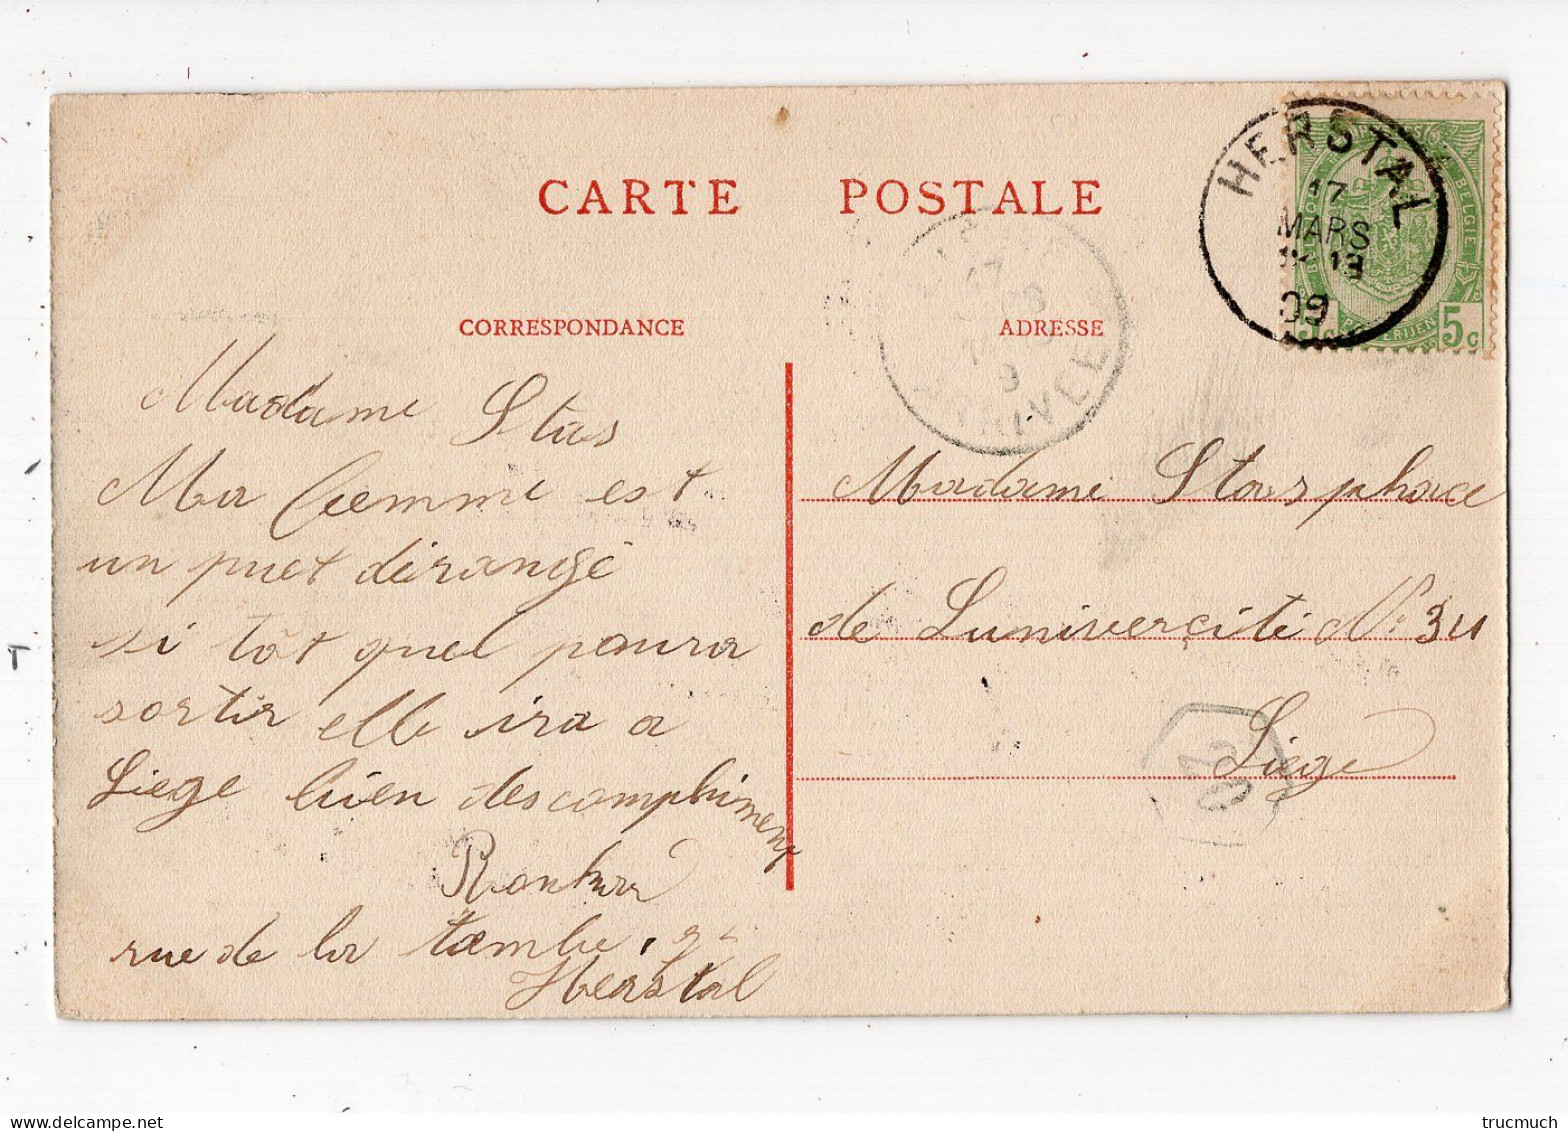 CARTE POSTALE
CORRESPONDANCE
ADRESSE
HERSTAL
17
MARS
09
BELGIE
5c
ARRIVEE
Madame Stas
Ma femme est
un puet dérangé
si tôt quel poura
sortir elle ira a
Liege bien des compliment
rue de la tombe
Herstal
Madame Stas place
de Luniverçité No 34
Liege
delcampe.net
trucmuch